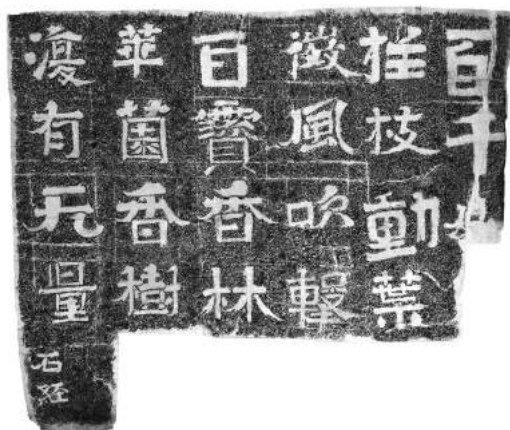 百千
推枝動葉
微風吹擊
百寶香林
華菌香樹
復有无量
石經